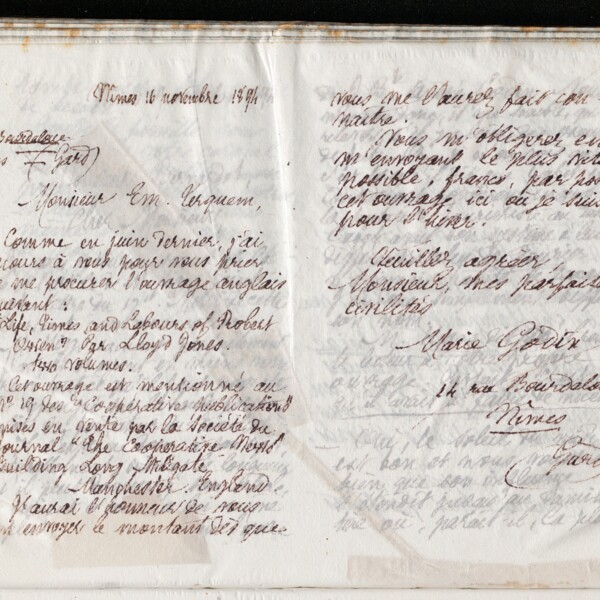 Nîmes 16 novembre 1894
Bourdaloue
(Gard)
Monsieur Em. Terquem,
Comme en juin dernier, j'ai
recours à vous pour vous prier
de me procurer l'ouvrage anglais
suivant:
Life, Times, and Labours of Robert
Owen" Par Lloyd Jones.
volumes.
Cet ouvrage est mentionné au
No 19 des "Cooperative publications"
mises en vente par la Société du
Journal "The Cooperative News"
Building Long Millgate
Manchester. England
J'aurai l'honneur de vous
en envoyer le montant dès que
vous me l'aurez fait con
naître.
Vous m'obligerez en
m'envoyant le plus vite
possible, franco, par
cet ouvrage ici où je suis
pour l'hiver.
Veuillez agréer,
Monsieur, mes parfaites
civilités
Marie Godin
14 rue Bourdaloue
Nîmes
(Gard